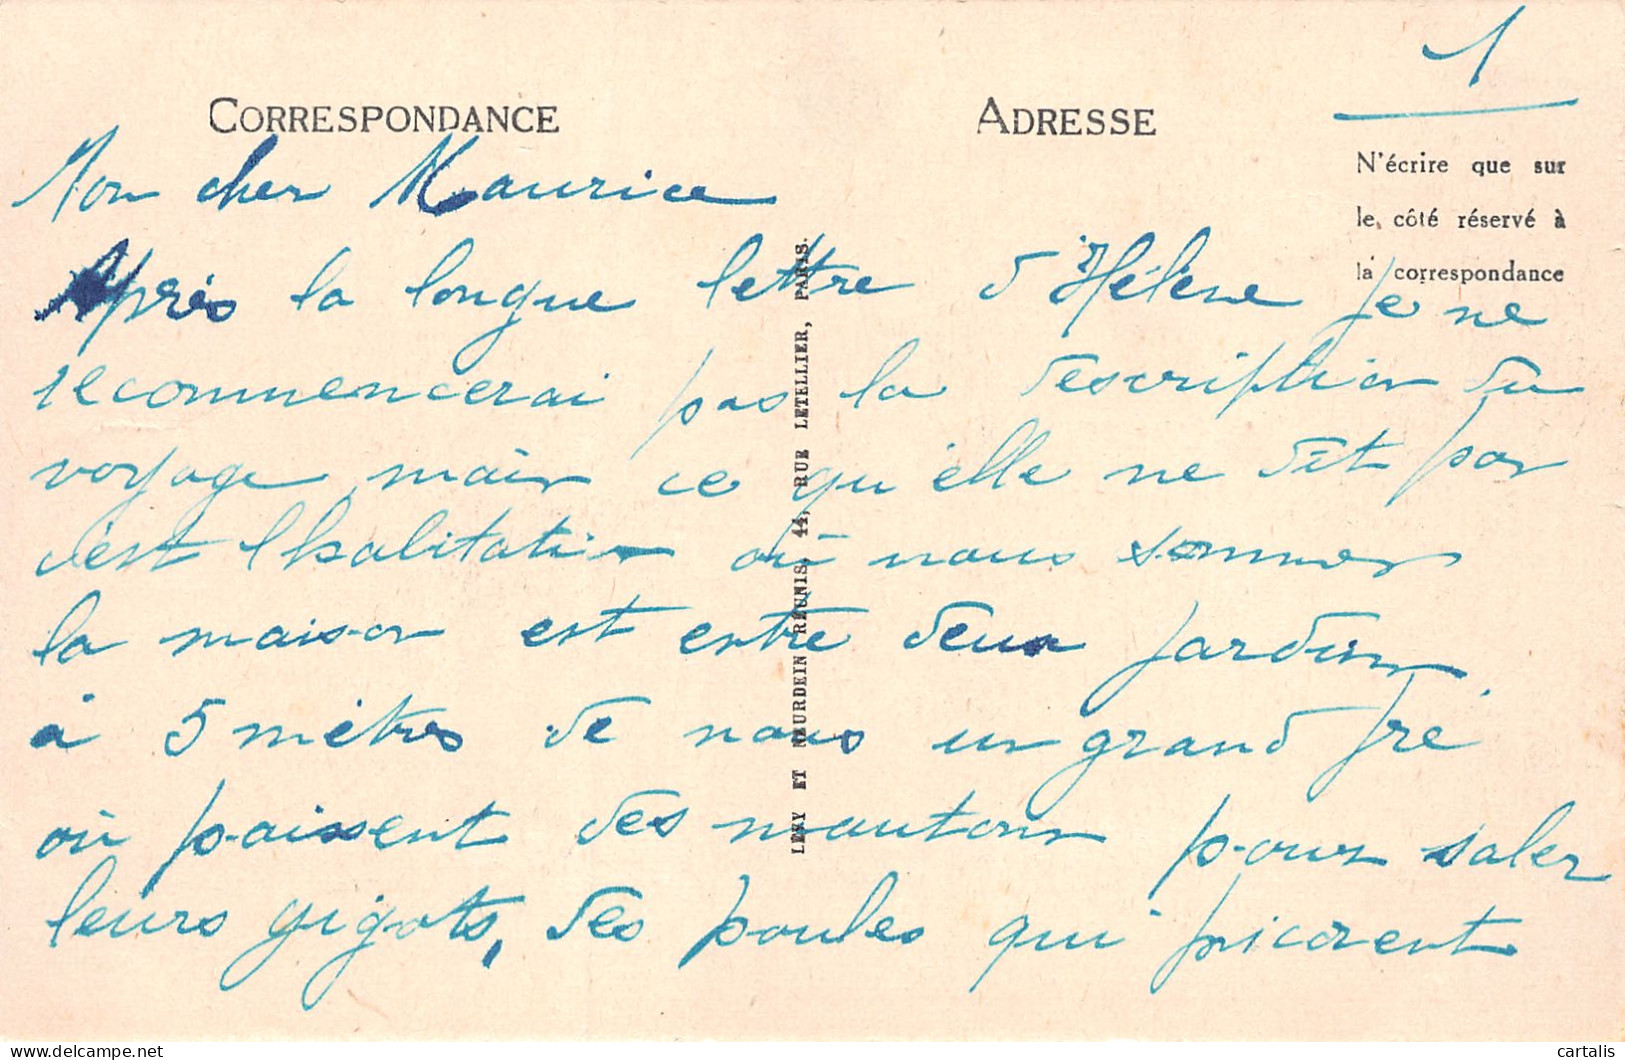 1
CORRESPONDANCE
ADRESSE
N'écrire que sur
le côté réservé à
la correspondance
Mon cher Maurice
Après la longue lettre d'Hélène je ne
recommencerai pas la description du
voyage mais ce qu'elle ne dit pas
c'est l'habitation où nous sommes
la maison est entre deux jardins,
à 5 mètres de nous un grand pré
où paissent des moutons pour saler
leurs gigots, des poules qui picorent
LÉVY ET NEURDEIN RÉUNIS, 44, RUE LETELLIER, PARIS.
delcampe.net
cartalis